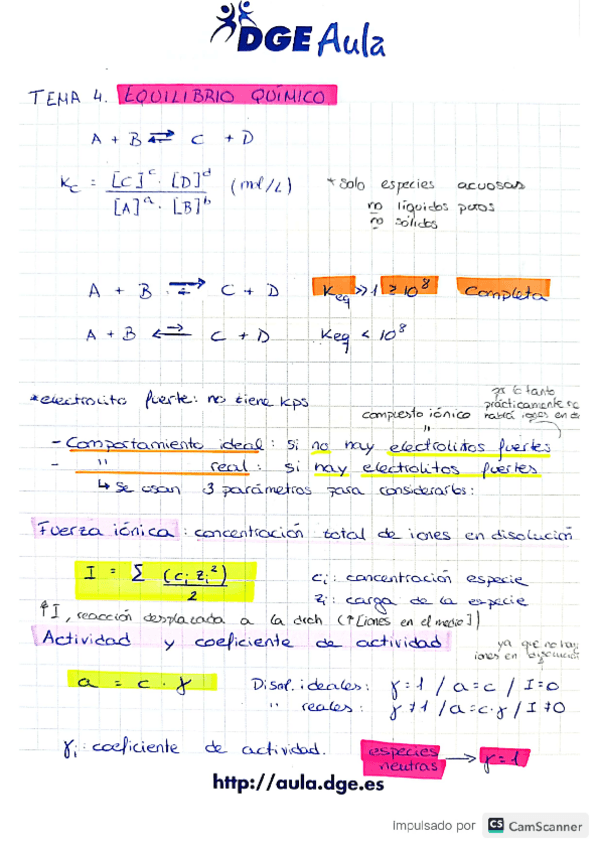 DGE Aula
TEMA 4. EQUILIBRIO QUÍMICO
A + B ⇄ C + D
Kc = [C]^c · [D]^d / [A]^a · [B]^b (mol/L)
* Solo especies acuosas
no líquidos puros
no sólidos
A + B ⇄ C + D Keq >> 1 ≥ 10^8 Completa
A + B ⇄ C + D Keq < 10^8
* electrolito fuerte: no tiene Kps
por lo tanto
prácticamente
compuesto iónico habrá iones en
"
- Comportamiento ideal: si no hay electrolitos fuertes
- " real: si hay electrolitos fuertes
↳ Se usan 3 parámetros para considerarlos:
Fuerza iónica: concentración total de iones en disolución
I = Σ (ci zi^2) / 2
ci: concentración especie
zi: carga de la especie
↑I, reacción desplazada a la drch (↑[iones en el medio])
Actividad y coeficiente de actividad
ya que no hay
iones en
a = c · γ
Disol. ideales: γ=1 / a=c / I=0
" reales: γ≠1 / a=c·γ / I≠0
γi: coeficiente de actividad.
especies neutras → γ=1
http://aula.dge.es
Impulsado por CS CamScanner